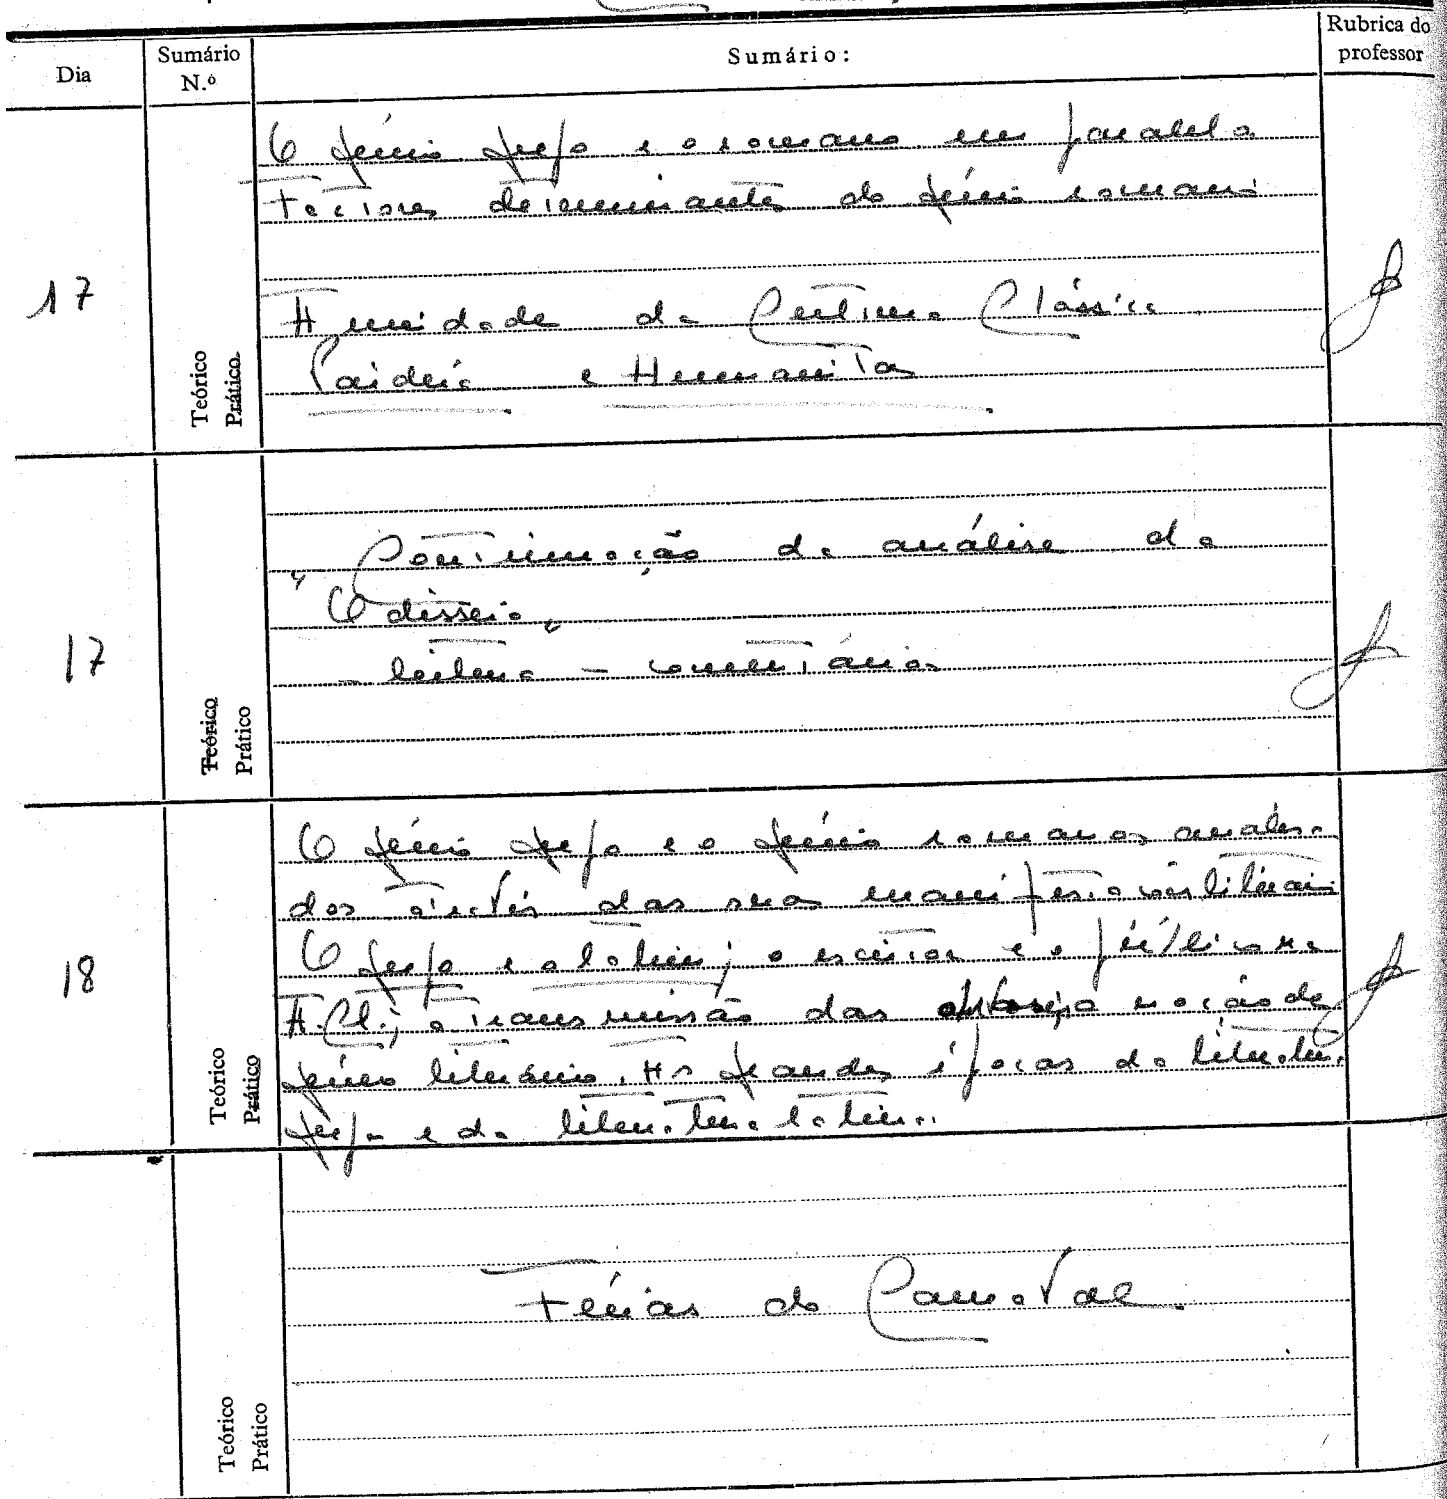 Dia
Sumário
N.º
Sumário:
Rubrica do
professor
17
Teórico
Prático
O génio grego e o romano em paralelo
Factores determinantes do génio romano
A unidade da Cultura Clássica.
Paideia e Humanitas
17
Teórico
Prático
Continuação da análise da
"Odisseia"
- leitura - comentários
18
Teórico
Prático
O génio grego e o génio romano analisa-
dos através das suas manifestações literárias
O grego e o latim; o escritor e o público na
A. Cl.; a transmissão das obras; a noção de
género literário. As grandes épocas da literatura
grega e da literatura latina.
Teórico
Prático
Férias do Carnaval